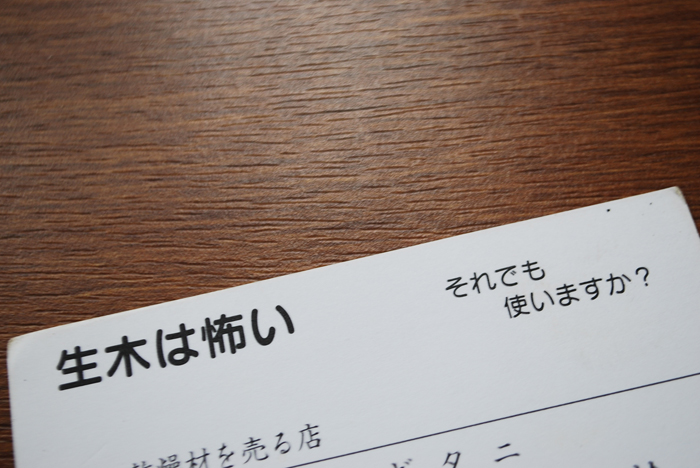 生木は怖い
それでも
使いますか？
乾燥材を売る店
ギタニ